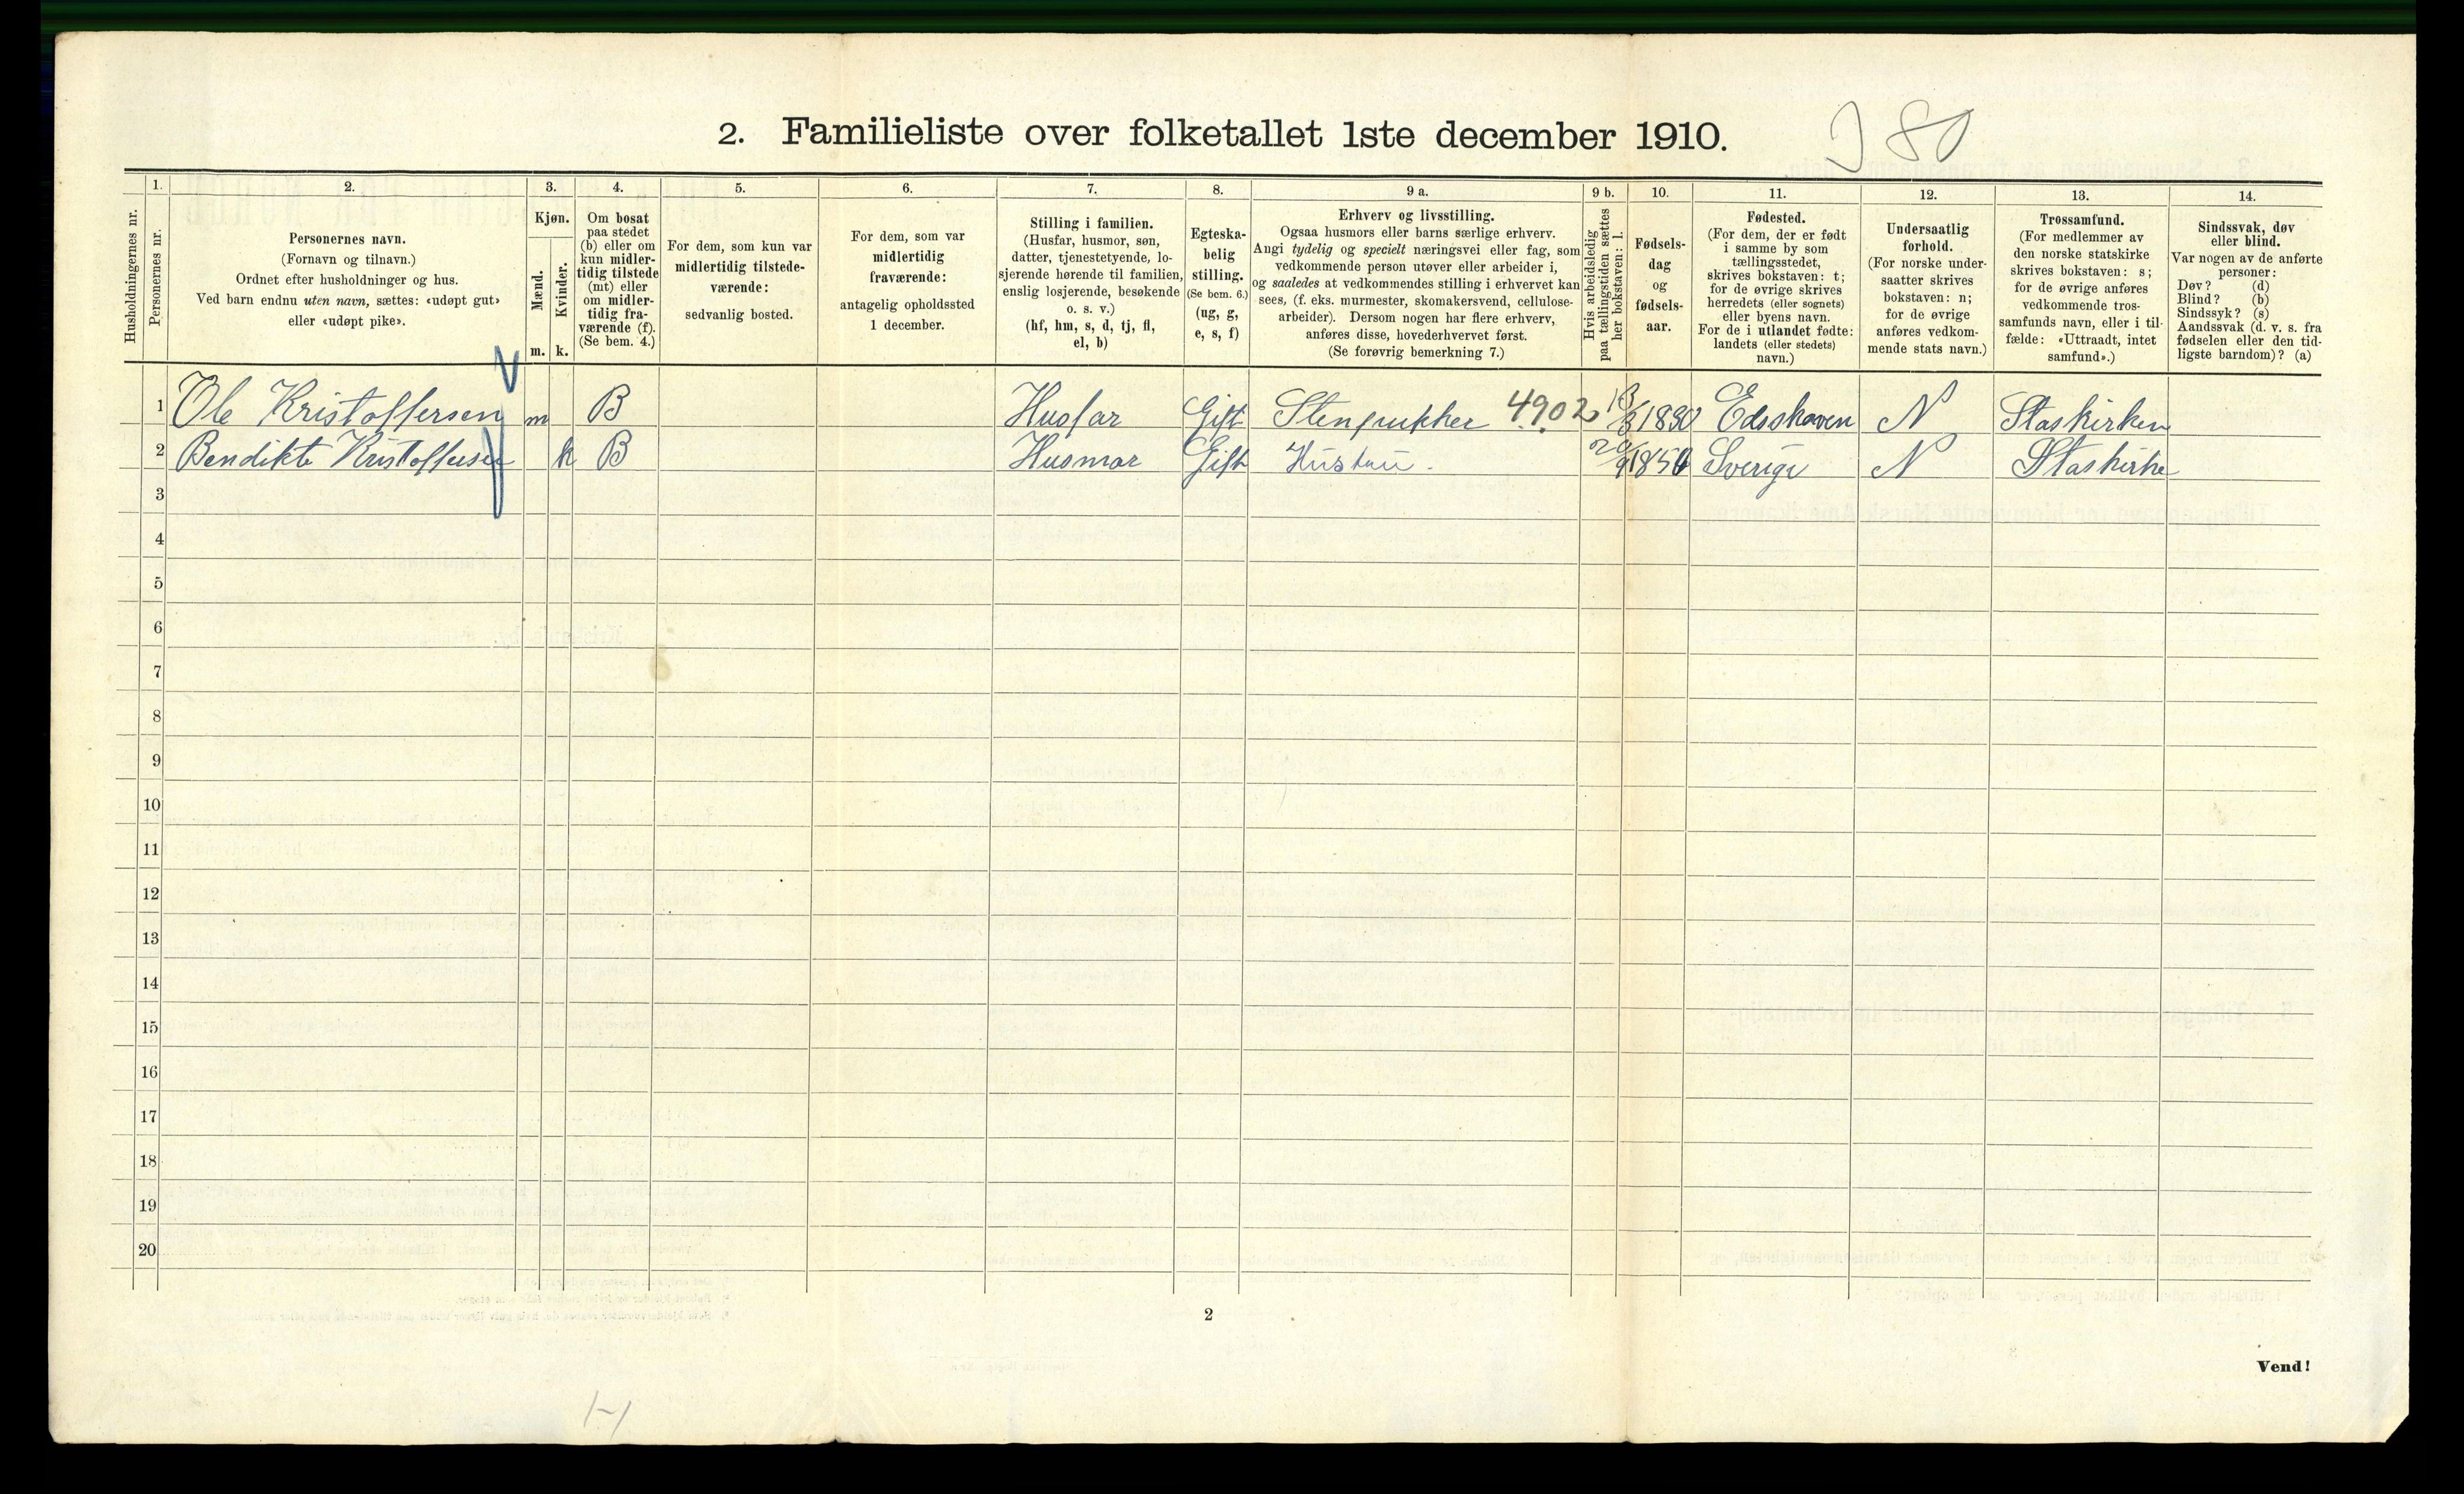 2. Familieliste over folketallet 1ste december 1910.
I 80
Husholdningernes nr.
1.
Personernes nr.
2.
Personernes navn.
(Fornavn og tilnavn.)
Ordnet efter husholdninger og hus.
Ved barn endnu uten navn, sættes: «udøpt gut»
eller «udøpt pike».
3.
Kjøn.
Mænd.
m.
Kvinder.
k.
4.
Om bosat
paa stedet
(b) eller om
kun midler-
tidig tilstede
(mt) eller
om midler-
tidig fra-
værende (f).
(Se bem. 4.)
5.
For dem, som kun var
midlertidig tilstede-
værende:
sedvanlig bosted.
6.
For dem, som var
midlertidig
fraværende:
antagelig opholdssted
1 december.
7.
Stilling i familien.
(Husfar, husmor, søn,
datter, tjenestetyende, lo-
sjerende hørende til familien,
enslig losjerende, besøkende
o. s. v.)
(hf, hm, s, d, tj, fl,
el, b)
8.
Egteska-
belig
stilling.
(Se bem. 6.)
(ug, g,
e, s, f)
9 a.
Erhverv og livsstilling.
Ogsaa husmors eller barns særlige erhverv.
Angi tydelig og specielt næringsvei eller fag, som
vedkommende person utøver eller arbeider i,
og saaledes at vedkommendes stilling i erhvervet kan
sees, (f. eks. murmester, skomakersvend, cellulose-
arbeider). Dersom nogen har flere erhverv,
anføres disse, hovederhvervet først.
(Se forøvrig bemerkning 7.)
9 b.
Hvis arbeidsledig
paa tællingstiden sættes
her bokstaven: l.
10.
Fødsels-
dag
og
fødsels-
aar.
11.
Fødested.
(For dem, der er født
i samme by som
tællingsstedet,
skrives bokstaven: t;
for de øvrige skrives
herredets (eller sognets)
eller byens navn.
For de i utlandet fødte:
landets (eller stedets)
navn.)
12.
Undersaatlig
forhold.
(For norske under-
saatter skrives
bokstaven: n;
for de øvrige
anføres vedkom-
mende stats navn.)
13.
Trossamfund.
(For medlemmer av
den norske statskirke
skrives bokstaven: s;
for de øvrige anføres
vedkommende tros-
samfunds navn, eller i til-
fælde: «Uttraadt, intet
samfund».)
14.
Sindssvak, døv
eller blind.
Var nogen av de anførte
personer:
Døv? (d)
Blind? (b)
Sindssyk? (s)
Aandssvak (d. v. s. fra
fødselen eller den tid-
ligste barndom)? (a)
1 Ole Kristoffersen m B Husfar Gift 4902 Edsskoven N Staskirken
2 Bendikte Kristoffersen k B Husmor Gift Hustru. Sverige N Staskirke
3
4
5
6
7
8
9
10
11
12
13
14
15
16
17
18
19
20
2
Vend!
1-1